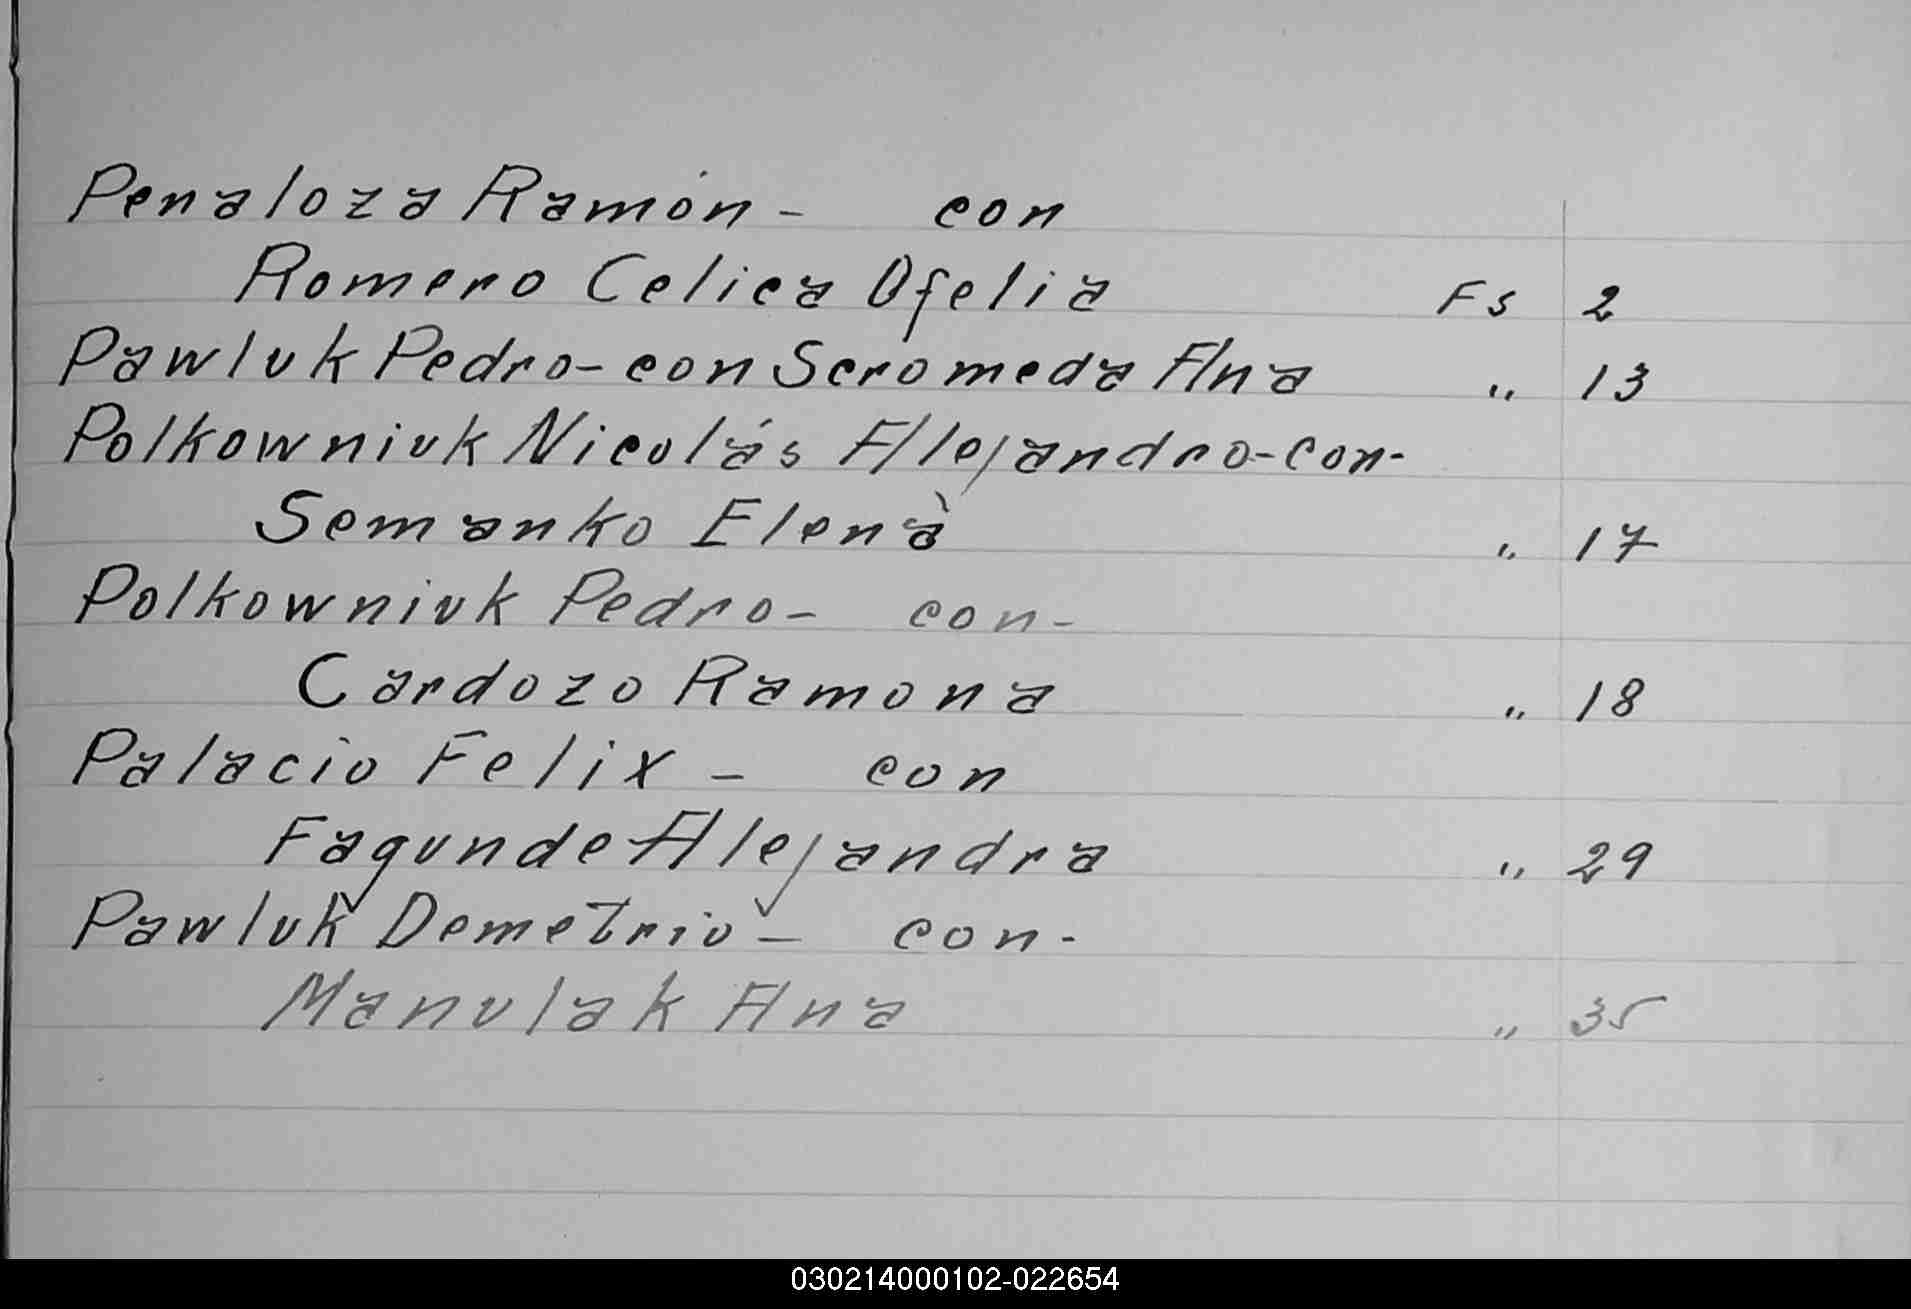 Penaloza Ramón - con
Romero Celica Ofelia Fs 2
Pawluk Pedro - con Seromeda Ana " 13
Polkowniuk Nicolás Alejandro - con -
Semanko Elena " 17
Polkowniuk Pedro - con -
Cardozo Ramona " 18
Palacio Felix - con
Fagunde Alejandra " 29
Pawluk Demetrio - con -
Manulak Ana " 35
030214000102-022654